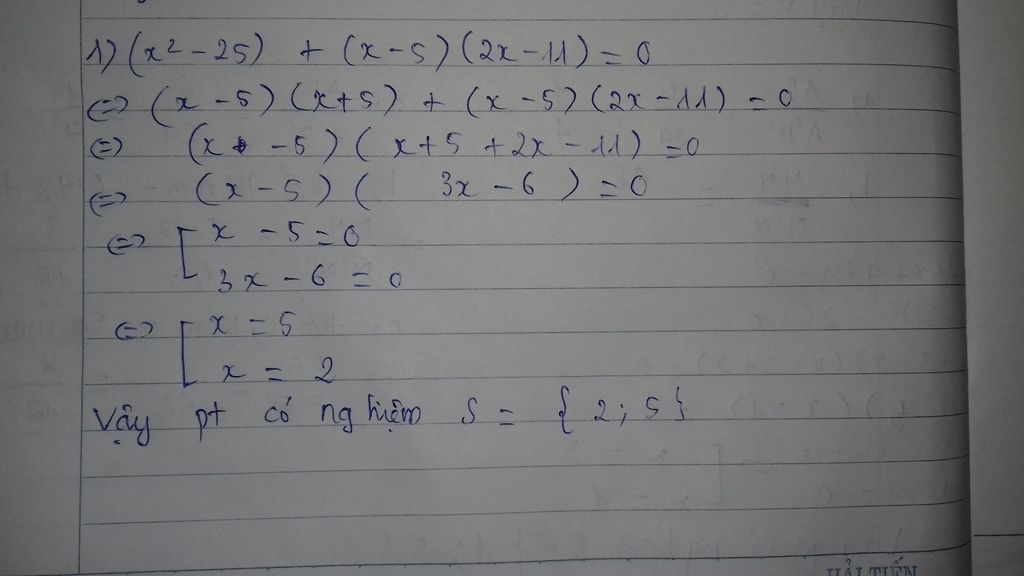 1) (x² - 25) + (x - 5)(2x - 11) = 0
⇔ (x - 5)(x + 5) + (x - 5)(2x - 11) = 0
⇔ (x - 5)(x + 5 + 2x - 11) = 0
⇔ (x - 5)(3x - 6) = 0
⇔ [ x - 5 = 0
3x - 6 = 0
⇔ [ x = 5
x = 2
Vậy pt có nghiệm S = {2; 5}
HẢI TIẾN